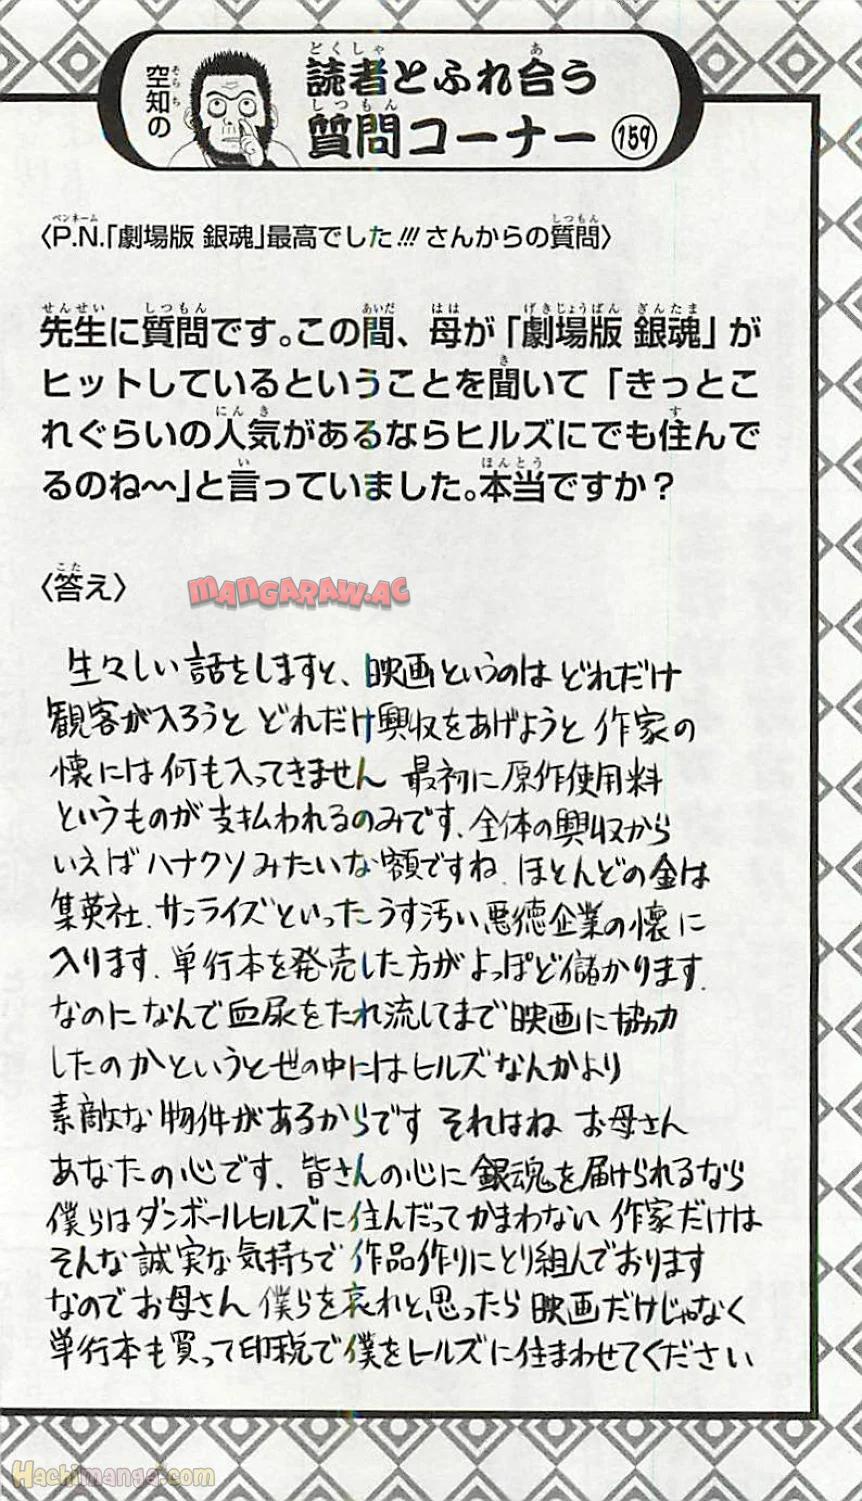 空知の
読者とふれ合う
質問コーナー159
〈P.N.「劇場版 銀魂」最高でした!!!さんからの質問〉
先生に質問です。この間、母が「劇場版 銀魂」が
ヒットしているということを聞いて「きっとこ
れぐらいの人気があるならヒルズにでも住んで
るのね〜」と言っていました。本当ですか？
〈答え〉
MANGARAW.AC
生々しい話をしますと、映画というのは どれだけ
観客が入ろうと どれだけ興収をあげようと 作家の
懐には何も入ってきません 最初に原作使用料
というものが支払われるのみです.全体の興収から
いえばハナクソみたいな額ですね. ほとんどの金は
集英社.サンライズといったうす汚い悪徳企業の懐に
入ります.単行本を発売した方がよっぽど儲かります.
なのになんで血尿をたれ流してまで映画に協力
したのかというと世の中にはヒルズなんかより
素敵な物件があるからです それはね お母さん
あなたの心です. 皆さんの心に銀魂を届けられるなら
僕らはダンボールヒルズに住んだってかまわない 作家だけは
そんな誠実な気持ちで作品作りにとり組んでおります
なのでお母さん 僕らを哀れと思ったら映画だけじゃなく
単行本も買って印税で僕をヒルズに住まわせてください
Hachimanga.com